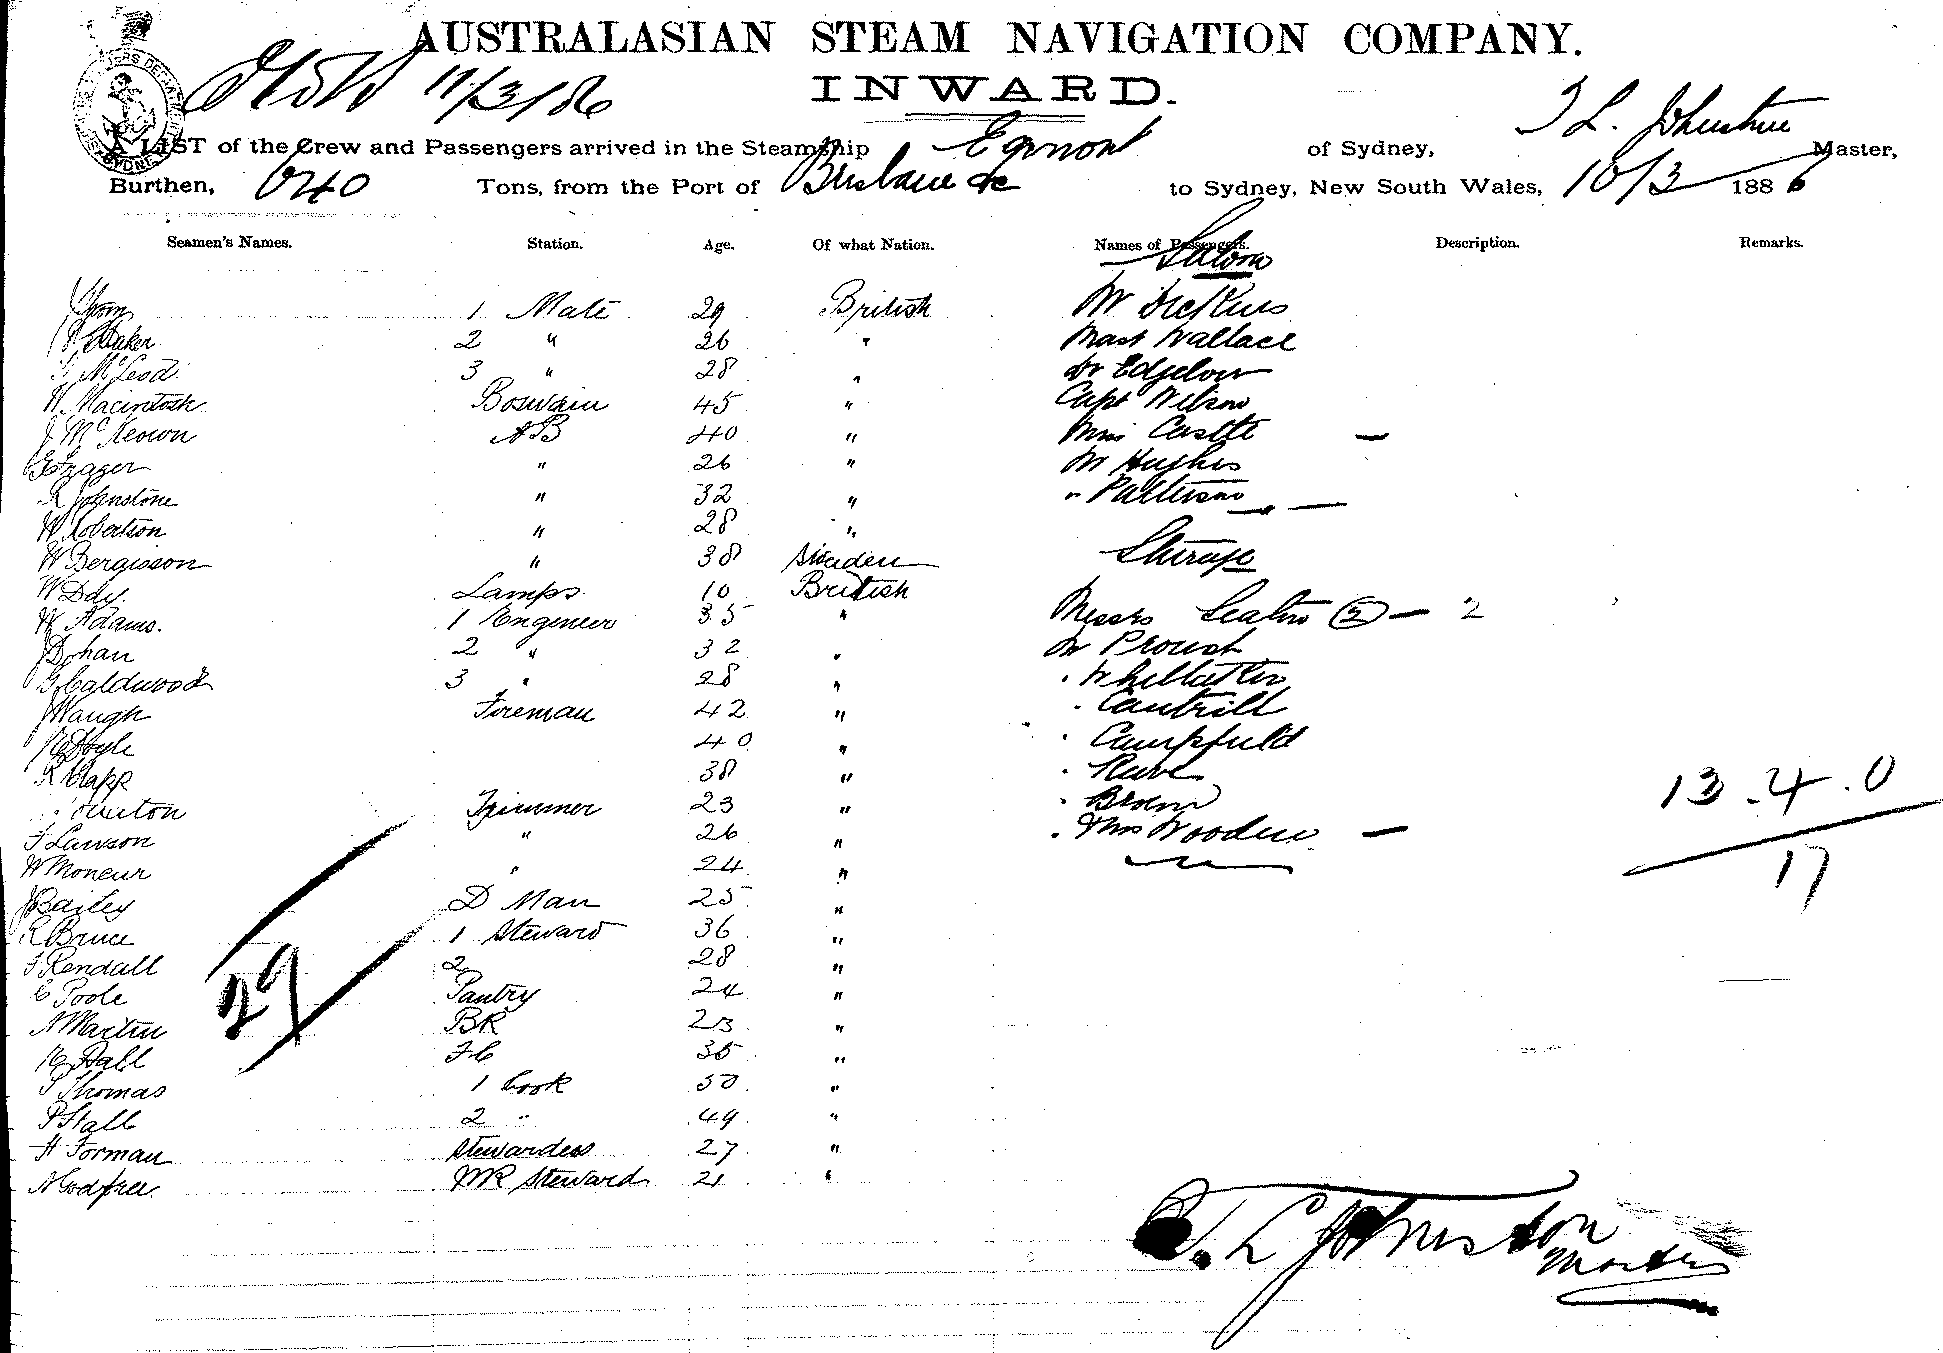 AUSTRALASIAN STEAM NAVIGATION COMPANY.
11/3/86
INWARD.
T L. Johnstone
A LIST of the Crew and Passengers arrived in the Steamship Egmont of Sydney, Master,
Burthen, 640 Tons, from the Port of Brisbane &c to Sydney, New South Wales, 10/3 1886
Seamen's Names. Station. Age. Of what Nation. Names of Passengers. Description. Remarks.
Saloon
1 Mate 29 British Mr Dickins
2 " 26 " Mast Wallace
McLeod 3 " 28 " Dr Edgelow
W. Macintosh Boswain 45 " Capt Wilson
J McKeown AB 40 " Miss Castle —
" 26 " Mr Hughes
R Johnstone " 32 " " Patterson
W Robertson " 28 "
W Bergisson " 38 Sweden Steerage
W Day Lamps 10 British
W Adams. 1 Engineer 35 " Messrs Seaton (2) — 2
J Dohan 2 " 32 " Mr Proust
G Caldwood 3 " 28 " " Whittaker
J Waugh Foreman 42 " " Cantrill
Hoyle 40 " " Campfield
R Clapp 38 " "
Trimmer 23 " " Brown
F Lawson " 26 " " Mrs Wooden —
W Moneur " 24 "
13.4.0
17
J Bailey D Man 25 "
R Bruce 1 Steward 36 "
Rendall 2 28 "
C Poole Pantry 24 "
29
A Martin BR 23 "
H Hall FC 35 "
Thomas 1 Cook 50 "
P Stall 2 " 49 "
H Forman Stewardess 27 "
A Godfree Steward 21 "
T. L Johnston
Master